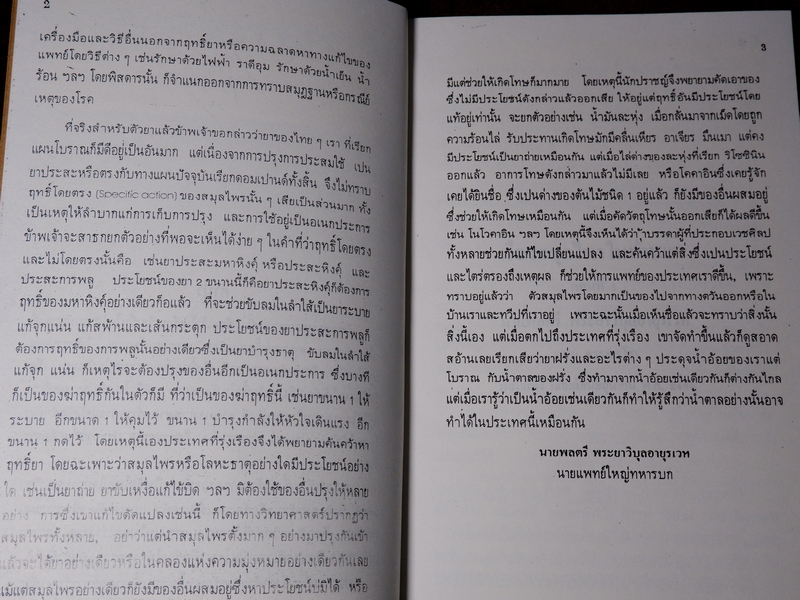 2
เครื่องมือและวิธีอื่นนอกจากฤทธิ์ยาหรือความฉลาดหาทางแก้ไขของ
แพทย์โดยวิธีต่าง ๆ เช่นรักษาด้วยไฟฟ้า ราดีอุม รักษาด้วยน้ำเย็น น้ำ
ร้อน ฯลฯ โดยพิสดารนั้น ก็จำแนกออกจากการทราบสมุฏฐานหรือกรณีย์
เหตุของโรค
ที่จริงสำหรับตัวยาแล้วข้าพเจ้าขอกล่าวว่ายาของไทย ๆ เรา ที่เรียก
แผนโบราณก็มีดีอยู่เป็นอันมาก แต่เนื่องจากการปรุงการประสมใช้ เปน
ยาประสะหรือตรงกับทางแผนปัจจุบันเรียกดอมเปานด์ทั้งสิ้น จึงไม่ทราบ
ฤทธิ์โดยตรง (Specific action) ของสมุลไพรนั้น ๆ เสียเป็นส่วนมาก ทั้ง
เป็นเหตุให้ลำบากแก่การเก็บการปรุง และการใช้อยู่เป็นอเนกประการ
ข้าพเจ้าจะสาธกยกตัวอย่างที่พอจะเห็นได้ง่าย ๆ ในคำที่ว่าฤทธิ์โดยตรง
และไม่โดยตรงนั้นคือ เช่นยาประสะมหาหิงคุ์ หรือประสะหิงคุ์ และ
ประสะการพลู ประโยชน์ของยา 2 ขนานนี้ก็คือยาประสะหิงคุ์ก็ต้องการ
ฤทธิ์ของมหาหิงคุ์อย่างเดียวก็อแล้ว ที่จะช่วยขับลมในลำไส้เป็นยาระบาย
แก้จุกแน่น แก้สพ้านและเส้นกระดุก ประโยชน์ของยาประสะการพลูก็
ต้องการฤทธิ์ของการพลูนั้นอย่างเดียวซึ่งเป็นยาบำรุงธาตุ ขับลมในลำไส้
แก้จุก แน่น ก็เหตุไรจะต้องปรุงของอื่นอีกเป็นอเนกประการ ซึ่งบางที
ก็เป็นของเข่นฆ่าฤทธิ์กันในตัวก็มี ที่ว่าเป็นของฆ่าฤทธิ์นี้ เช่นยาขนาน 1 ให้
ระบาย อีกขนาด 1 ให้คุมไว้ ขนาน 1 บำรุงกำลังให้หัวใจเดินแรง อีก
ขนาน 1 กดไว้ โดยเหตุนี้เองประเทศที่รุ่งเรืองจึงได้พยายามค้นคว้าหา
ฤทธิ์ยา โดยฉะเพาะว่าสมุลไพรหรือโลหะธาตุอย่างใดมีประโยชน์อย่าง
ใด เช่นเป็นยาถ่าย ยาขับเหงื่อแก้ไข้บิด ฯลฯ มิต้องใช้ของอื่นปรุงให้หลาย
อย่าง การซึ่งเขาแก้ไขดัดแปลงเช่นนี้ ก็โดยทางวิทยาศาสตร์ปรากฏว่า
สมุลไพรทั้งหลาย, อย่าว่าแต่นำสมุลไพรตั้งมาก ๆ อย่างมาปรุงกันเข้า
แล้วจะได้ยาอย่างเดียวหรือในคลองแห่งความมุ่งหมายอย่างเดียวกันเลย
แม้แต่สมุลไพรอย่างเดียวก็ยังมีของอื่นผสมอยู่ซึ่งหาประโยชน์บ่มิได้ หรือ
3
มีแต่ช่วยให้เกิดโทษก็มากมาย โดยเหตุนี้นักปราชญ์จึงพยายามคัดเอาของ
ซึ่งไม่มีประโยชน์ดังกล่าวแล้วออกเสีย ให้อยู่แต่ฤทธิ์อันมีประโยชน์โดย
แท้อยู่เท่านั้น จะยกตัวอย่างเช่น น้ำมันละหุ่ง เมื่อกลั่นมาจากเม็ดโดยถูก
ความร้อนไล่ รับประทานเกิดโทษมักมีคลื่นเหียร อาเจียร มึนเมา แต่คง
มีประโยชน์เป็นยาถ่ายเหมือนกัน แต่เมื่อไล่ด่างของละหุ่งที่เรียก ริโซซินิน
ออกแล้ว อาการโทษดังกล่าวมาแล้วไม่มีเลย หรือโคคาอินซึ่งเคยรู้จัก
เคยได้ยินชื่อ ซึ่งเปนด่างของต้นไม้ชนิด 1 อยู่แล้ว ก็ยังมีของอื่นผสมอยู่
ซึ่งช่วยให้เกิดโทษเหมือนกัน แต่เมื่อคัดวัตถุโทษนั้นออกเสียก็ได้ผลดีขึ้น
เช่น โนโวคาอิน ฯลฯ โดยเหตุนี้จึงเห็นได้ว่าบรรดาผู้ที่ประกอบเวชศิลป
ทั้งหลายช่วยกันแก้ไขเปลี่ยนแปลง และค้นคว้าแต่สิ่งซึ่งเปนประโยชน์
และไตร่ตรองถึงเหตุผล ก็ช่วยให้การแพทย์ของประเทศเราดีขึ้น, เพราะ
ทราบอยู่แล้วว่า ตัวสมุลไพรโดยมากเป็นของไปจากทางตวันออกหรือใน
บ้านเราและทวีปที่เราอยู่ เพราะฉะนั้นเมื่อเห็นชื่อแล้วจะทราบว่าสิ่งนั้น
สิ่งนี้เอง แต่เมื่อตกไปถึงประเทศที่รุ่งเรือง เขาจัดทำขึ้นแล้วก็ดูสอาด
สอ้านเลยเรียกเสียว่ายาฝรั่งและอะไรต่าง ๆ ประดุจน้ำอ้อยของเราแต่
โบราณ กับน้ำตาลของฝรั่ง ซึ่งทำมาจากน้ำอ้อยเช่นเดียวกันก็ต่างกันไกล
แต่เมื่อเรารู้ว่าเป็นน้ำอ้อยเช่นเดียวกันก็ทำให้รู้สึกว่าน้ำตาลอย่างนั้นอาจ
ทำได้ในประเทศนี้เหมือนกัน
นายพลตรี พระยาวิบุลอายุรเวท
นายแพทย์ใหญ่ทหารบก